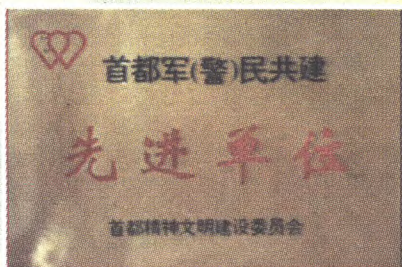 首都军(警)民共建
先进单位
首都精神文明建设委员会